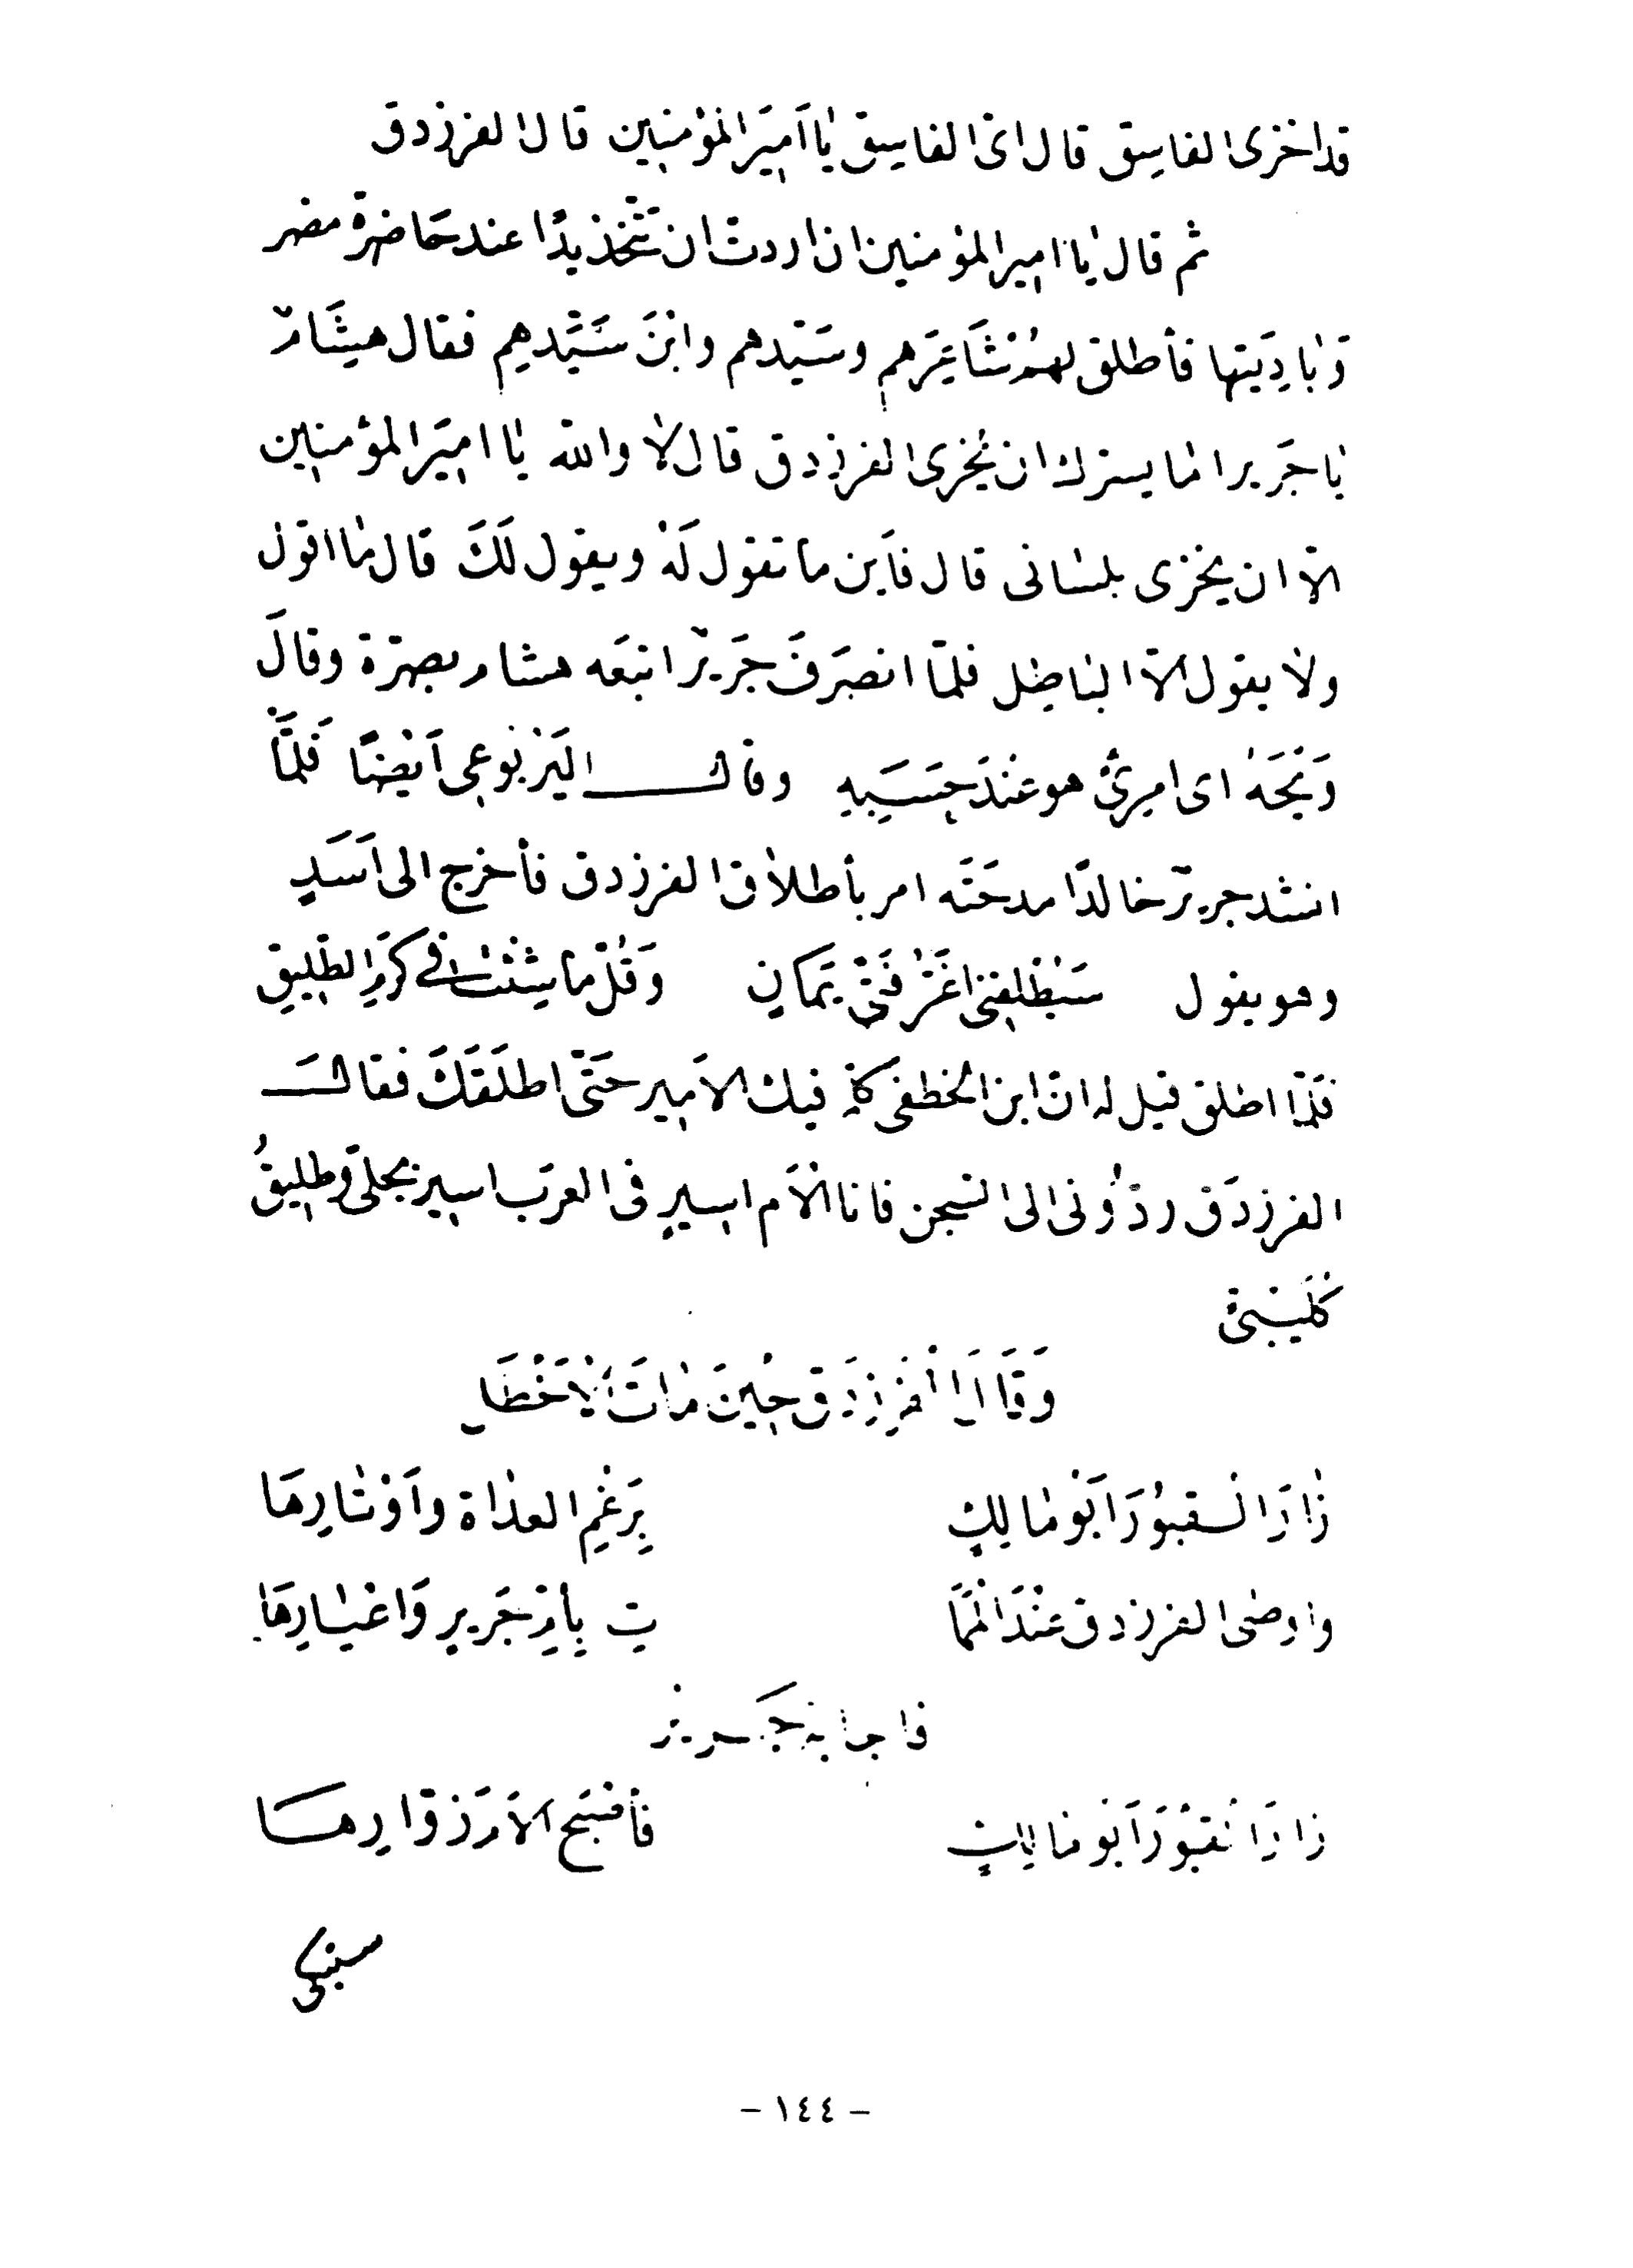 قد اخزى الفاسِق قال اىّ الفاسِق يا اَمِيَر المؤمنِين قال الفرزدق
ثم قال يا اميِر المؤمنين ان اردتَ ان تَتّخذ يدًا عند حَاضرة مضر
وَبادِيَتها فأطلق لهمْ شَاعِرَهم وسَيّدهم وابْنَ سَيَّدهِم فقال هِشَامٌ
يا جَرير اما يسرّك ان يُخزى الفرزدق قال لا والله يا امِيَر المؤمنِين
الاّ ان يخزى بلسانى قال فأين ما تقول لَهُ ويقول لَكَ قال ما اقول
ولا يقول الاّ الباطِل فلمّا انصَرَفَ جَرِيرٌ اتبعَه هشام بصرَة وقالَ
وَيْحَهُ اى امرِئٍ هو عنْدَ حسَبِهِ وقال اليَرْبُوعى اَيْضًا فَلمَّا
انشد جريرٌ خالدًا مدحَتَه امر بأطلاق الفرزدق فأخرج الى اَسَدٍ
وهو يقول سَيُطْلِقنِى اَغَرُّ فَتًى يَمَانٍ وَقُلْ ما شِئْتَ فى كَرَمِ الطّلِيقِ
فلمّا اطلق قيل له ان ابن الخطفى كلّم فيك الاَمِير حَتّى اطلَقَكَ فقالَ
الفرزدَق ردّوُنى الى السّجن فانا اَلأم اسِيرٍ فى العرَب اسِير بجلىّ وطلِيقُ
كُلَيْبىّ
وَقَالَ الفَرزدَق حِينَ مَاتَ الاَخْطَل
زارَ القبوُرَ اَبُو مالِكٍ بِرَغْمِ العداة واَوْتارِهَا
واوصى الفرزدق عنْدَ المَمَا تِ بِأمّ جَرِيرٍ وَاعْيارِهَا
فاجابه جَرير
زارَ القبُورَ اَبُو مالِكٍ فأصْبَح اَلأمَ زُوّارِهَا
- ١٤٤ -